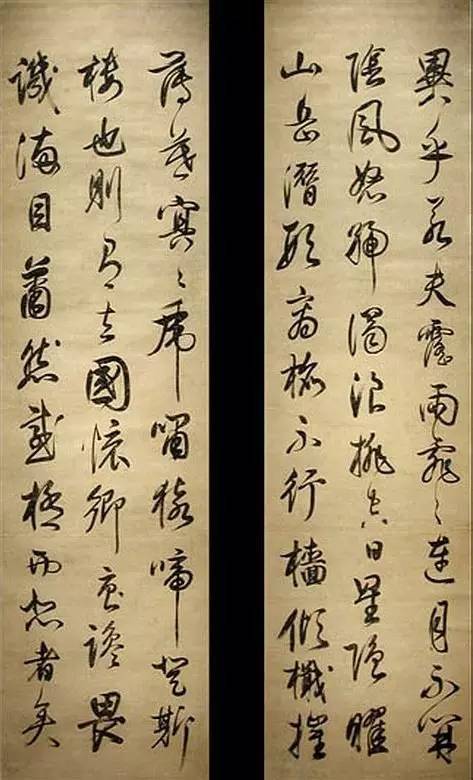 異乎若夫霪雨霏〻連月不開
陰風怒號濁浪排空日星隱曜
山岳潛形商旅不行檣傾檝摧
薄暮冥〻虎嘯猿啼登斯
樓也則有去國懷鄉憂讒畏
譏滿目蕭然感極而悲者矣